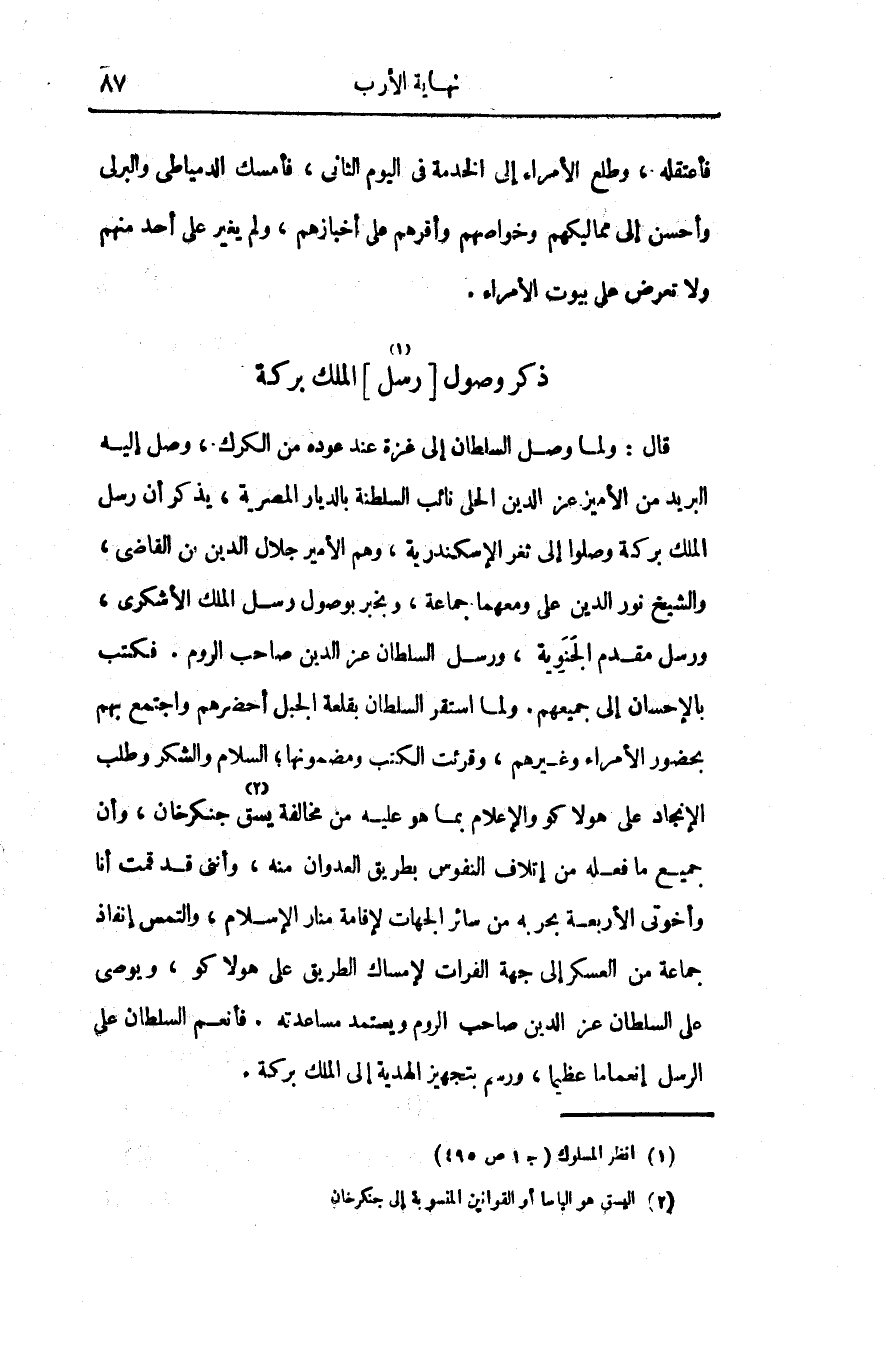 نهاية الأرب ٨٧
فأعتقله ، وطلع الأمراء إلى الخدمة فى اليوم الثانى ، فأمسك الدمياطى والبرلى
وأحسن إلى مماليكهم وخواصهم وأقرهم على أخبازهم ، ولم يغير على أحد منهم
ولا تعرض على بيوت الأمراء .
ذكر وصول [ رسل ] (١) الملك بركة
قال : ولما وصل السلطان إلى غزة عند عوده من الكرك ، وصل إليه
البريد من الأمير عز الدين الحلى نائب السلطنة بالديار المصرية ، يذكر أن رسل
الملك بركة وصلوا إلى ثغر الإسكندرية ، وهم الأمير جلال الدين بن القاضى ،
والشيخ نور الدين على ومعهما جماعة ، ويخبر بوصول رسل الملك الأشكرى ،
ورسل مقدم الجَنَوِية ، ورسل السلطان عز الدين صاحب الروم . فكتب
بالإحسان إلى جميعهم . ولما استقر السلطان بقلعة الجبل أحضرهم واجتمع بهم
بحضور الأمراء وغيرهم ، وقرئت الكتب ومضمونها ؛ السلام والشكر وطلب
الإنجاد على هولاكو والإعلام بما هو عليه من مخالفة يسق (٢) جنكزخان ، وأن
جميع ما فعله من إتلاف النفوس بطريق العدوان منه ، وأننى قد قمت أنا
وأخوتى الأربعة بحربه من سائر الجهات لإقامة منار الإسلام ، والتمس إنفاذ
جماعة من العسكر إلى جهة الفرات لإمساك الطريق على هولاكو ، ويوصى
على السلطان عز الدين صاحب الروم ويستمد مساعدته . فأنعم السلطان على
الرسل إنعاما عظيما ، ورسم بتجهيز الهدية إلى الملك بركة .
(١) انظر المسلوك (جـ ١ ص ٤٩٥)
(٢) اليسق هو الياسا أو القوانين المنسوبة إلى جنكزخان